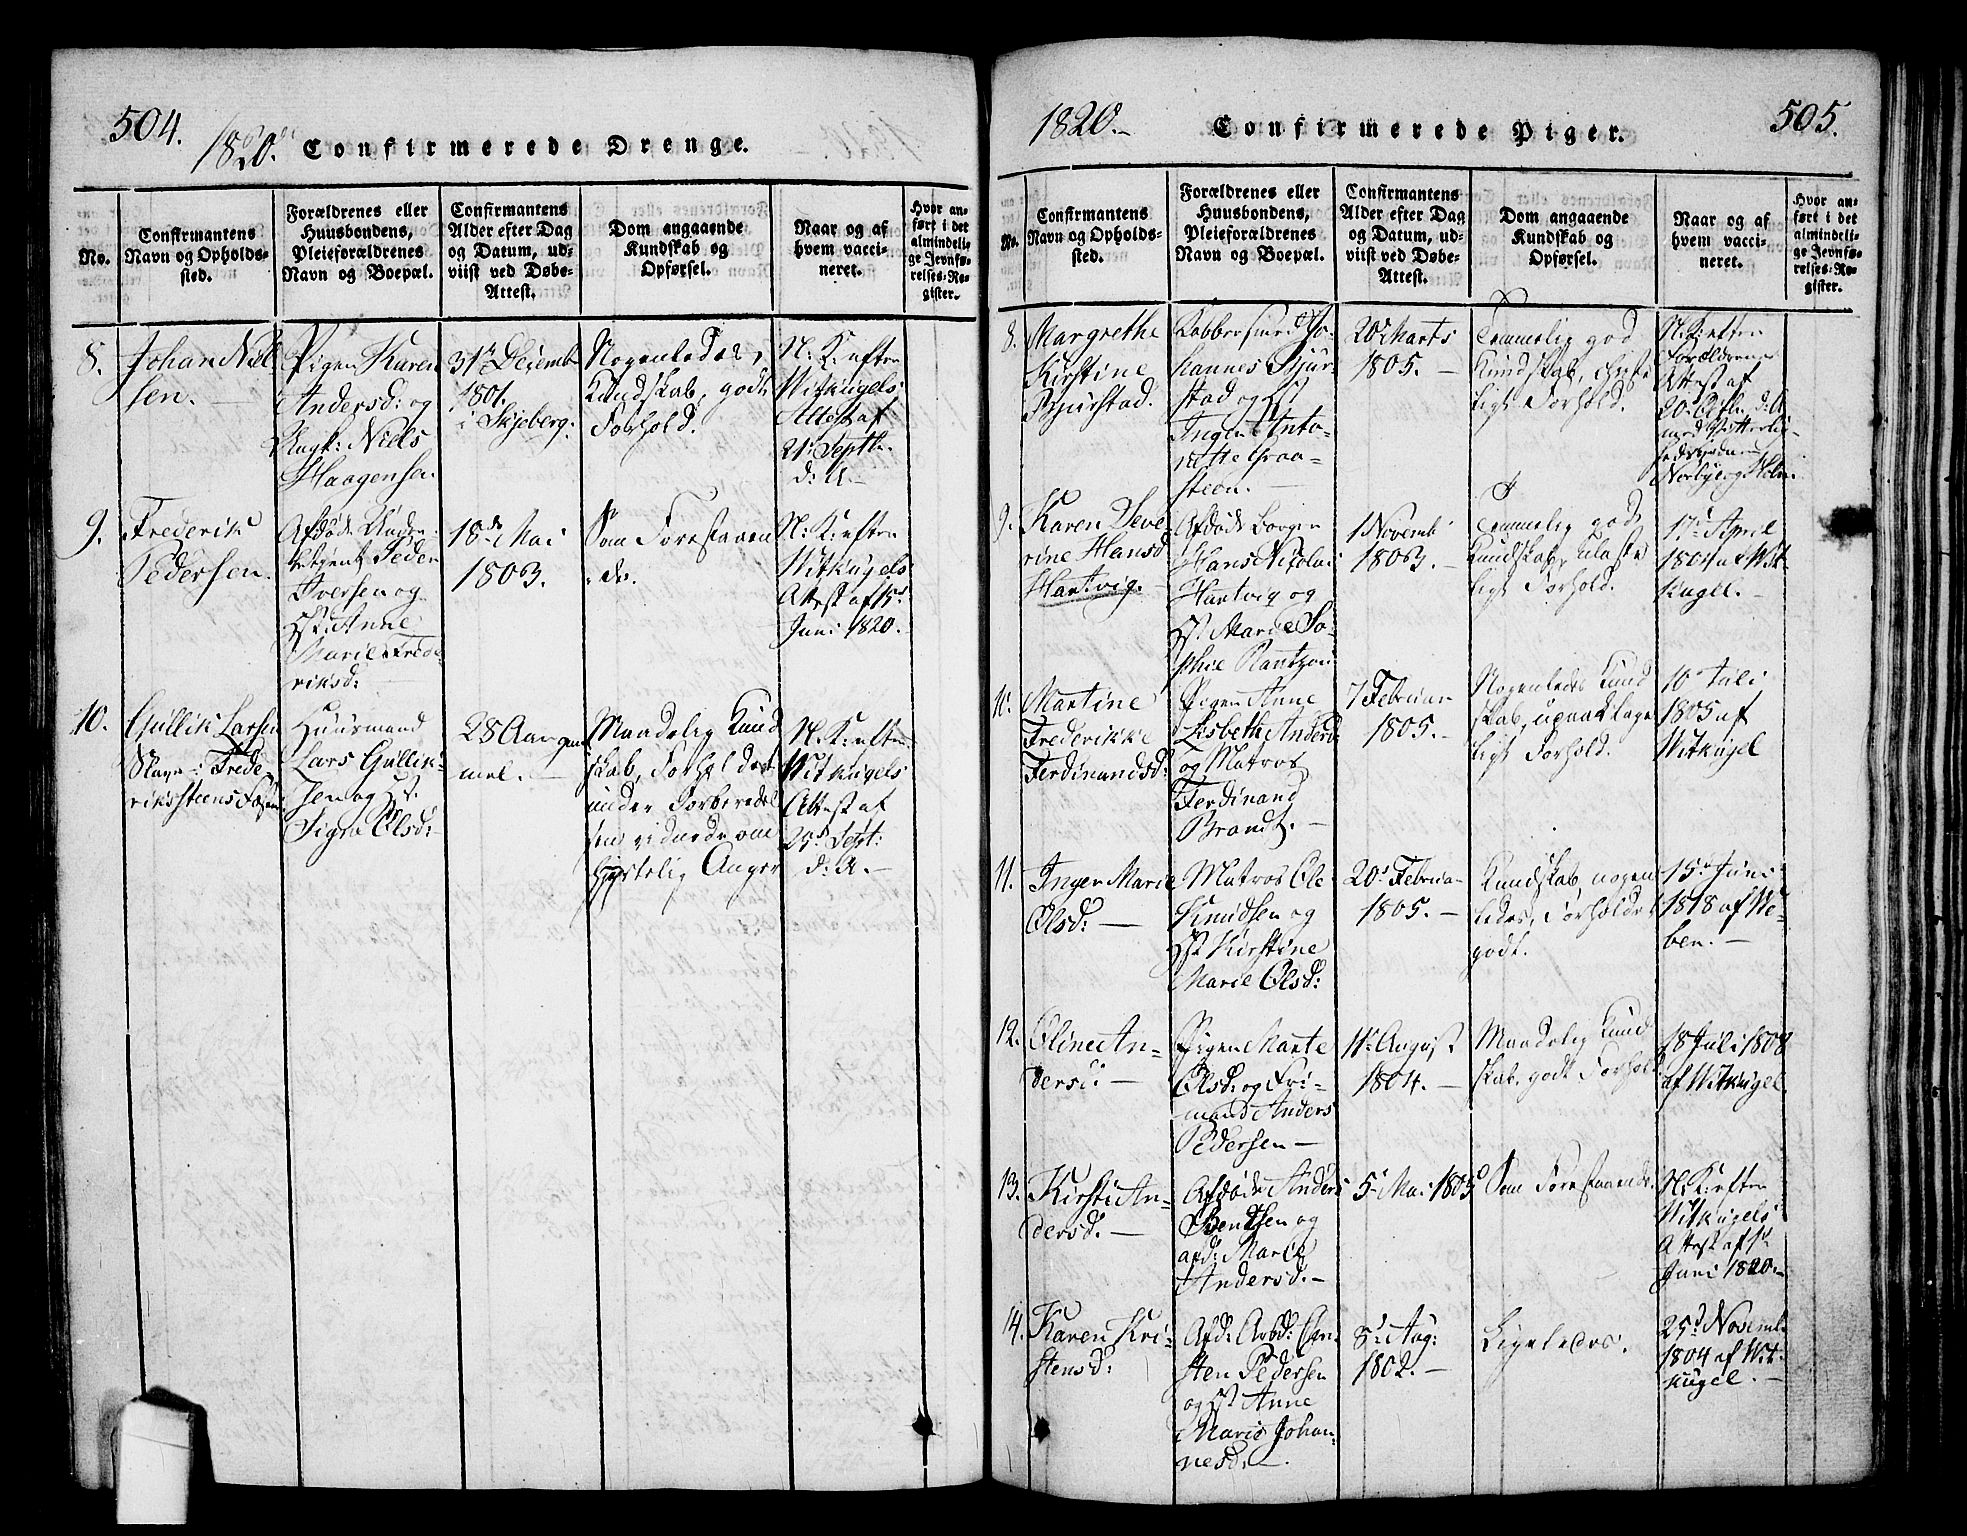 504.
1820.
Confirmerede Drenge.
No.
Confirmantens
Navn og Opholds-
sted.
Forældrenes eller
Huusbondens,
Pleieforældrenes
Navn og Boepæl.
Confirmantens
Alder efter Dag
og Datum, ud-
viist ved Døbe-
Attest.
Dom angaaende
Kundskab og
Opførsel.
Naar og af
hvem vacci-
neret.
Hvor an-
ført i det
almindeli-
ge Jevnfø-
relses-Re-
gister.
8.
Johan Niel
sen.
Pigen Karen
Andersd: og
Ungk: Niels
Haagensen
31te Decemb
1801.
i Skjeberg.
Nogenledes
Kundskab, godt
Forhold.
N. K. efter
Witkugels
Attest af
21d Septbr.
d: A.
9.
Frederik
Pedersen.
Afdøde Under-
Peder
Iversen og
Hst: Anne
Marie Frede-
riksd:
18de Mai
1803.
Som Forestaaen
de.
N: K: efter
Witkugels
Attest af 15d
Juni 1820.
10.
Gullik Larsen
Slave i Frede-
rikssteens Fæstn:
Huusmand
Lars Gullik-
sen og Hst.
Signe Olsd:
28 Aar gam
mel.
Maadelig Kund
skab, Forholdet
under Forberedel
sen vidnede om
hjertelig Anger
N. K. efter
Witkugels
Attest af
25d Sept:
d: A.
1820.
Confirmerede Piger.
505.
No.
Confirmantens
Navn og Opholds-
sted.
Forældrenes eller
Huusbondens,
Pleieforældrenes
Navn og Boepæl.
Confirmantens
Alder efter Dag
og Datum, ud-
viist ved Døbe-
Attest.
Dom angaaende
Kundskab og
Opførsel.
Naar og af
hvem vacci-
neret.
Hvor an-
ført i det
almindeli-
ge Jevnfø-
relses-Re-
gister.
8.
Margrethe
Kirstine
Bjurstad.
Kobbersmed Jo-
hannes Bjur-
stad og Hst
Inger Anto-
nette Graa-
steen.
20de Marts
1805.
Temmelig god
Kundskab, christe
ligt Forhold.
N: K: efter
Forældrenes
Attest af
20d Octbr. d: A
med
Norbye og Holm
9.
Karen Seve-
rine Hansd
Hartvig.
Afdøde Borger
Hans Nikolai
Hartvig og
Hst Marie So-
phie Rantzou
1 Novemb
1803.
Temmelig god
Kundskab,
ligt Forhold.
17d April
1804 af Wit
kugel.
10.
Martine
Frederikke
Ferdinandsd:
Pigen Anne
Lisbeth Andersd
og Matros
Ferdinand
Brandt.
7 Februar
1805.
Nogenledes Kund
skab, upaaklage
ligt Forhold.
10d Juli
1805 af
Witkugel
11.
Inger Marie
Olsd:
Matros Ole
Knudsen og
Hst Kirstine
Marie Olsd:
20d Februar
1805.
Kundskab nogen
ledes, Forholdet
godt.
15d Juni
1818 af We-
ben.
12.
Oline An-
dersd:
Pigen Marte
Olsd: og Fri-
mand Anders
Pedersen
11te August
1804.
Maadelig Kund
skab, godt Forhold
18 Juli 1808
af Witkugel
13.
Kirsti An-
dersd.
Afdøde Anders
Bendtsen og
afd: Marie
Andersd.
5 Mai 1805
Som Forestaaende.
N. K. efter
Witkugels
Attest af 1d
Juni 1820.
14.
Karen Kri-
stensd:
Afd: Arbd: Chri-
sten Pedersen
og Hst Anne
Marie Johan-
nesd.
8d Aug:
1802.
Ligeledes.
25d Novemb
1804 af Wit-
kugel.